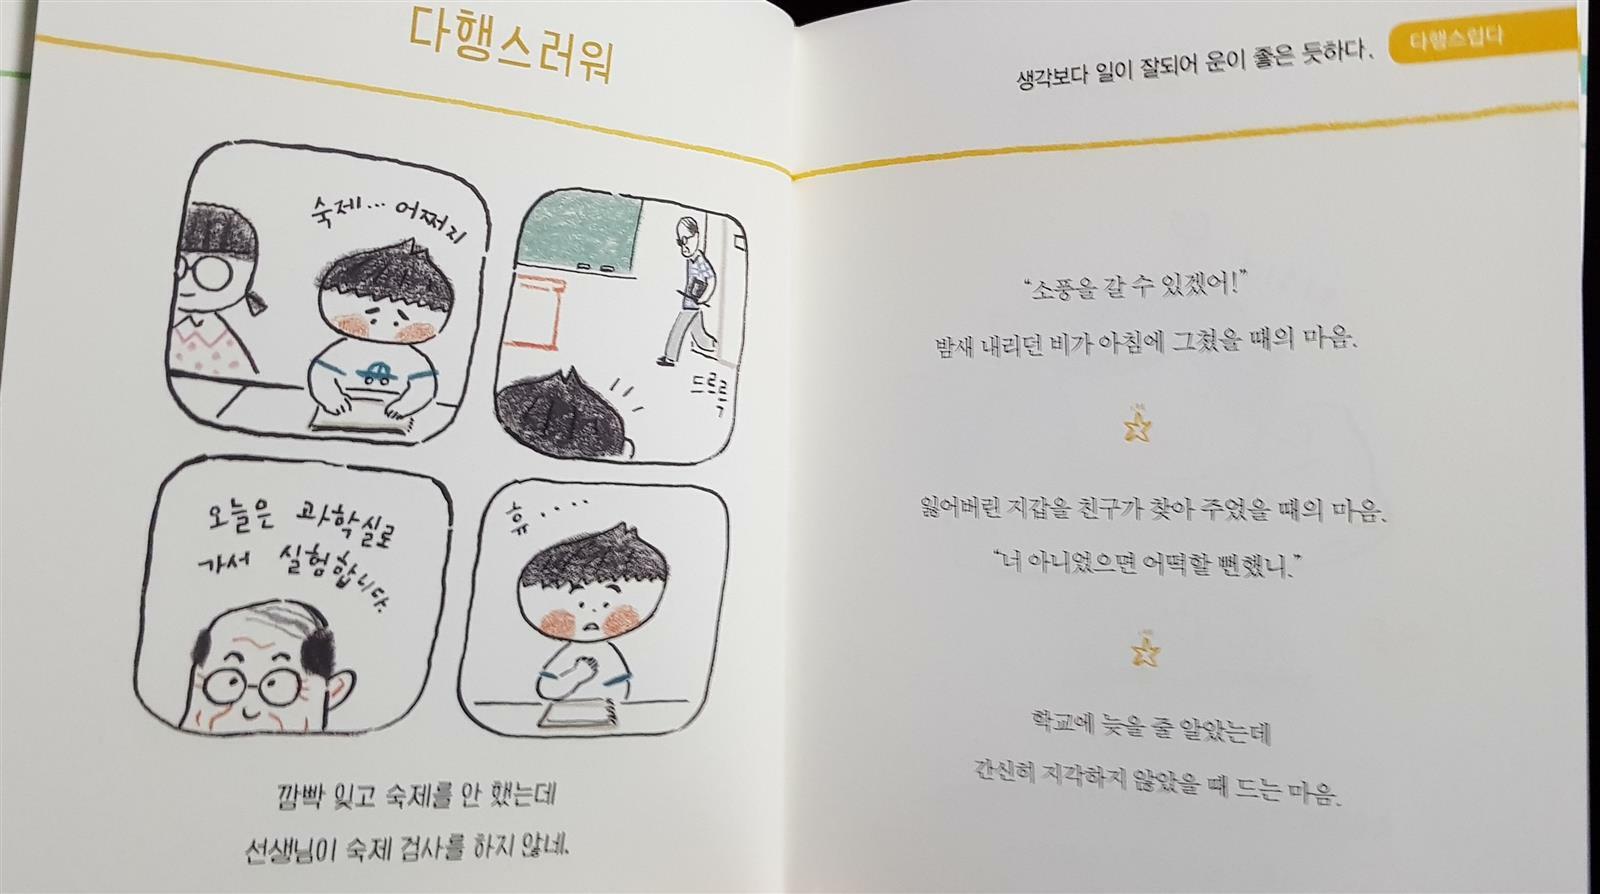 다행스러워
숙제... 어쩌지
드르륵
오늘은 과학실로
가서 실험합니다.
휴....
깜빡 잊고 숙제를 안 했는데
선생님이 숙제 검사를 하지 않네.
다행스럽다
생각보다 일이 잘되어 운이 좋은 듯하다.
“소풍을 갈 수 있겠어!”
밤새 내리던 비가 아침에 그쳤을 때의 마음.
잃어버린 지갑을 친구가 찾아 주었을 때의 마음.
“너 아니었으면 어떡할 뻔했니.”
학교에 늦을 줄 알았는데
간신히 지각하지 않았을 때 드는 마음.